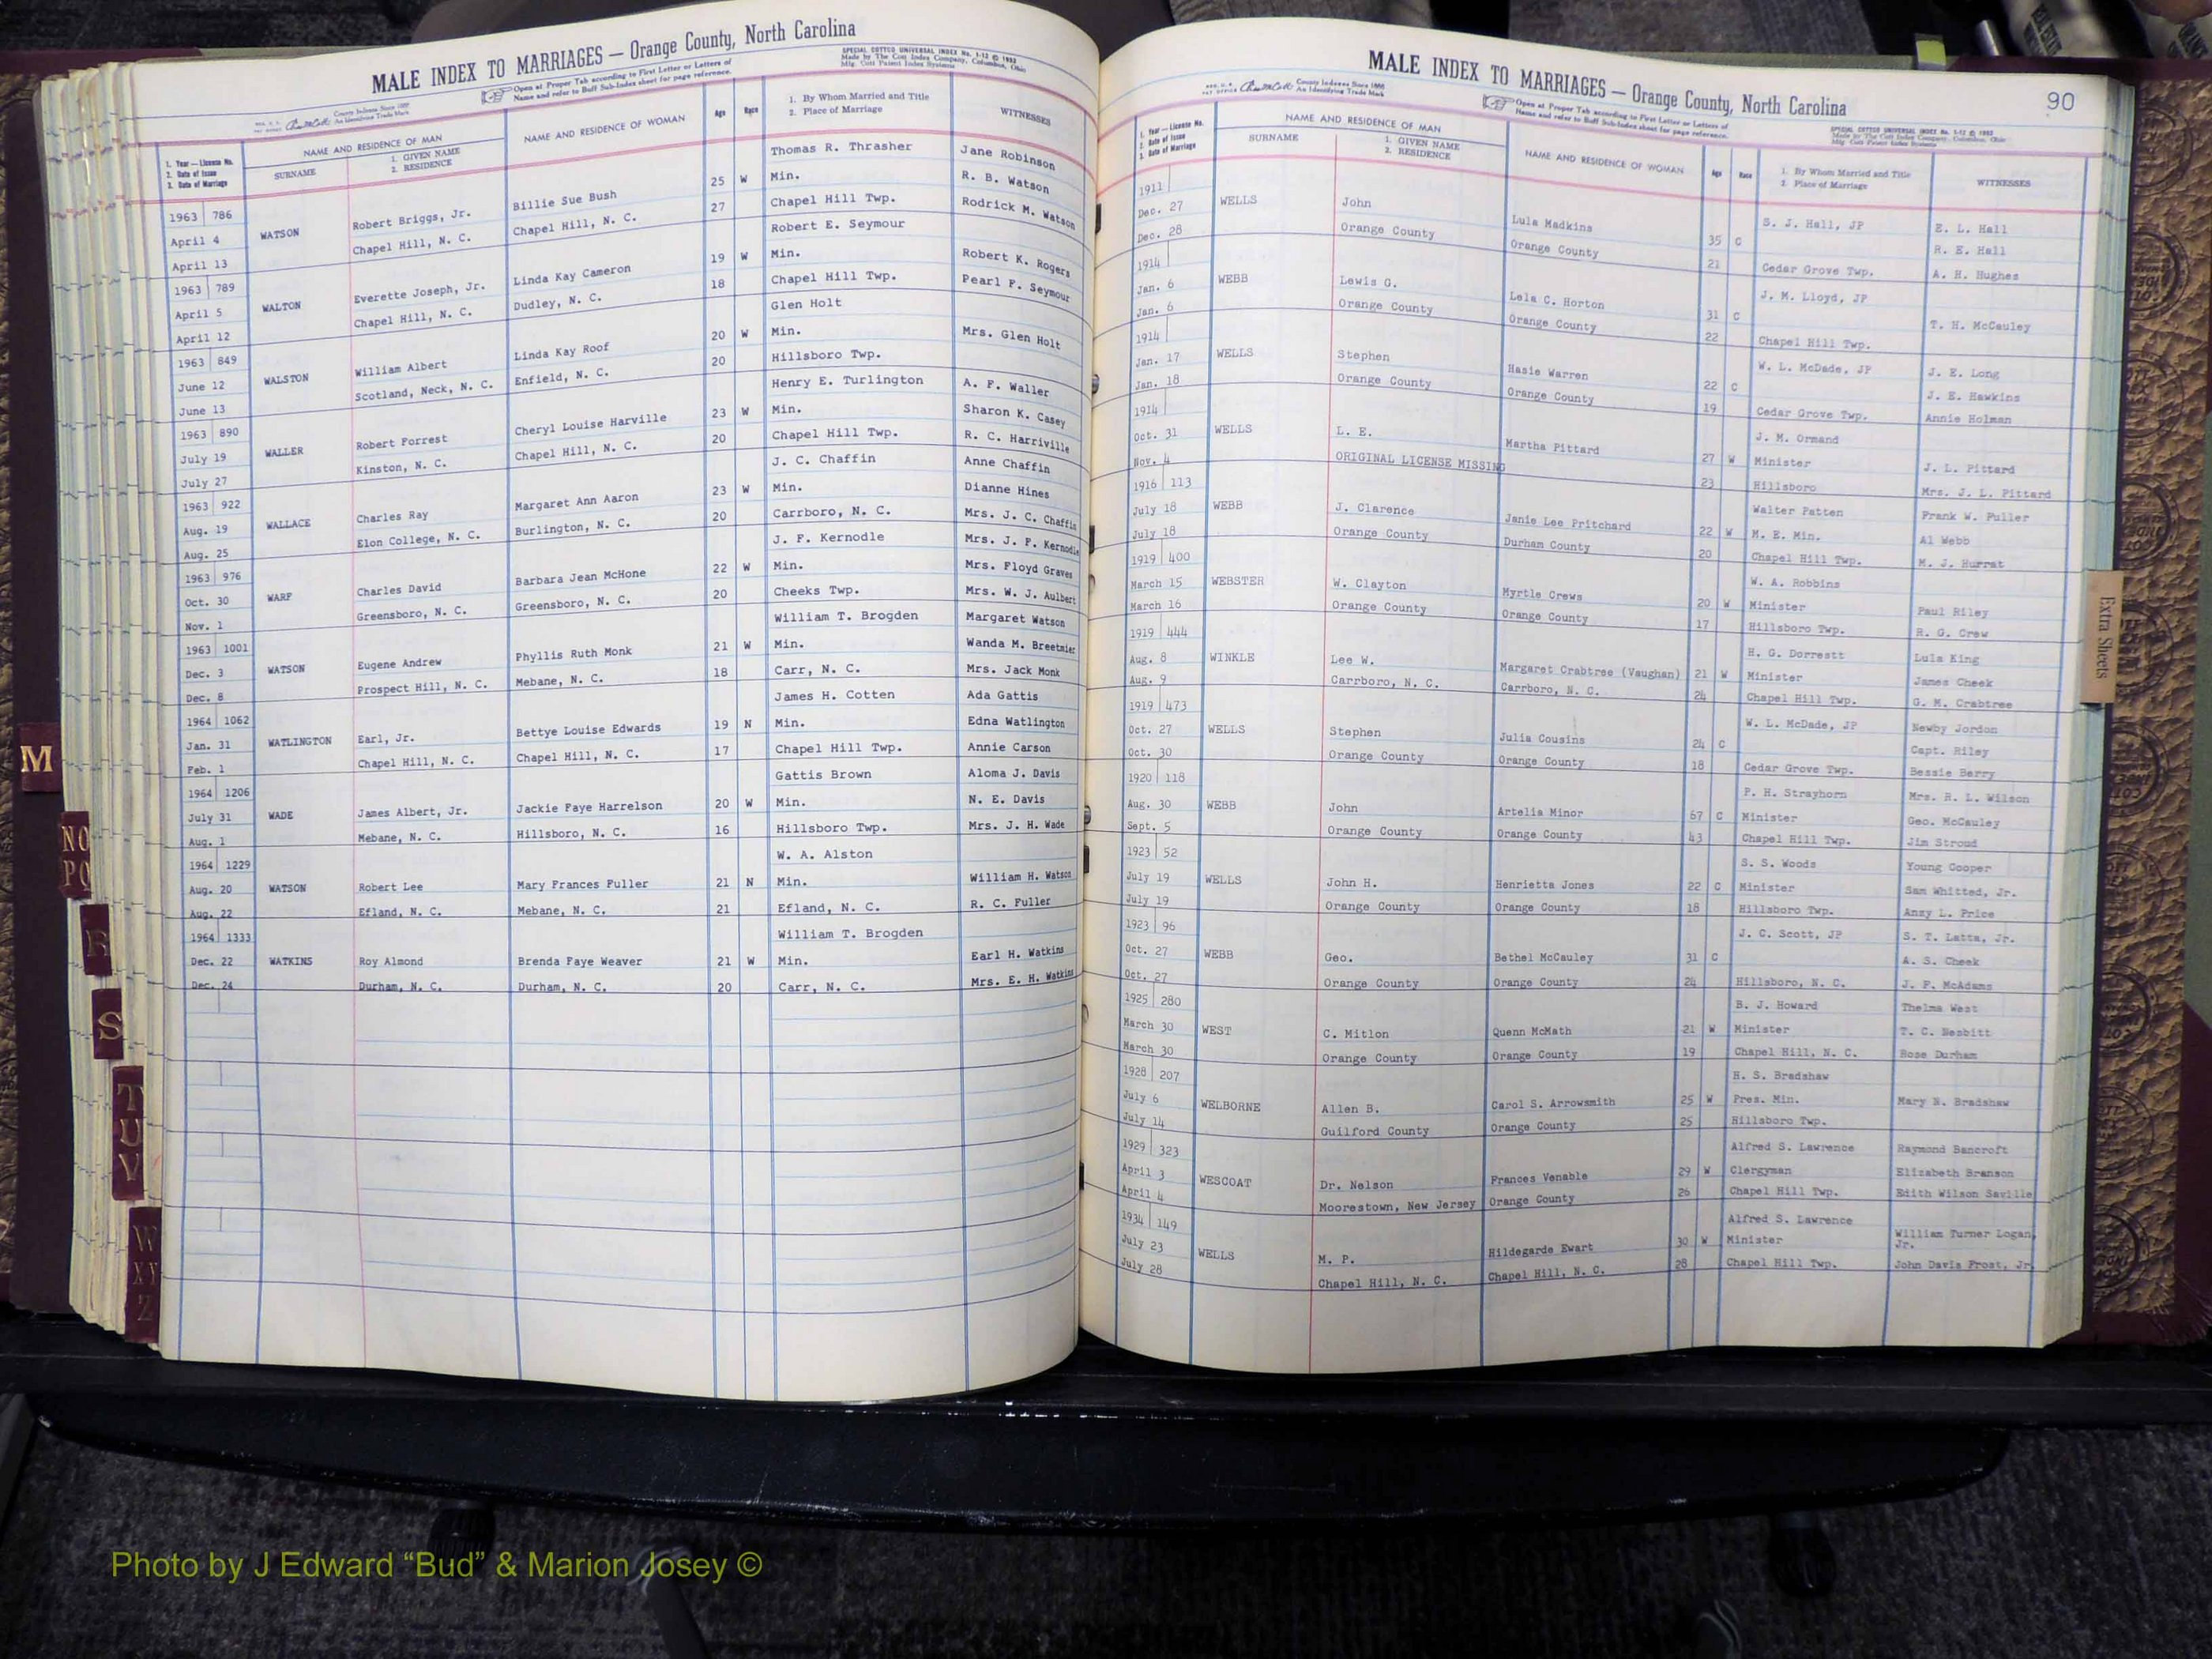 MALE INDEX TO MARRIAGES — Orange County, North Carolina
Open at Proper Tab according to First Letter or Letters of
Name and refer to Buff Sub-Index sheet for page reference.
SPECIAL COTTCO UNIVERSAL INDEX No. 1-12 © 1953
Made by The Cott Index Company, Columbus, Ohio
Mfg. Cott Patent Index Systems
County Indexes Since 1888
An Identifying Trade Mark
1. Year — License No.
2. Date of Issue
3. Date of Marriage
NAME AND RESIDENCE OF MAN
SURNAME
1. GIVEN NAME
2. RESIDENCE
NAME AND RESIDENCE OF WOMAN
Age
Race
1. By Whom Married and Title
2. Place of Marriage
WITNESSES
Thomas R. Thrasher Jane Robinson
1963 786 Billie Sue Bush 25 W Min. R. B. Watson
April 4 WATSON Robert Briggs, Jr. Chapel Hill, N. C. 27 Chapel Hill Twp. Rodrick M. Watson
April 13 Chapel Hill, N. C.
Robert E. Seymour
1963 789 Linda Kay Cameron 19 W Min. Robert K. Rogers
April 5 WALTON Everette Joseph, Jr. Dudley, N. C. 18 Chapel Hill Twp. Pearl F. Seymour
April 12 Chapel Hill, N. C.
Glen Holt
1963 849 Linda Kay Roof 20 W Min. Mrs. Glen Holt
June 12 WALSTON William Albert Enfield, N. C. 20 Hillsboro Twp.
June 13 Scotland, Neck, N. C.
Henry E. Turlington A. F. Waller
1963 890 Cheryl Louise Harville 23 W Min. Sharon K. Casey
July 19 WALLER Robert Forrest Chapel Hill, N. C. 20 Chapel Hill Twp. R. C. Harriville
July 27 Kinston, N. C.
J. C. Chaffin Anne Chaffin
1963 922 Margaret Ann Aaron 23 W Min. Dianne Hines
Aug. 19 WALLACE Charles Ray Burlington, N. C. 20 Carrboro, N. C. Mrs. J. C. Chaffin
Aug. 25 Elon College, N. C.
J. F. Kernodle Mrs. J. F. Kernodle
1963 976 Barbara Jean McHone 22 W Min. Mrs. Floyd Graves
Oct. 30 WARF Charles David Greensboro, N. C. 20 Cheeks Twp. Mrs. W. J. Aulbert
Nov. 1 Greensboro, N. C.
William T. Brogden Margaret Watson
1963 1001 Phyllis Ruth Monk 21 W Min. Wanda M. Breetmier
Dec. 3 WATSON Eugene Andrew Mebane, N. C. 18 Carr, N. C. Mrs. Jack Monk
Dec. 8 Prospect Hill, N. C.
James H. Cotten Ada Gattis
1964 1062 Bettye Louise Edwards 19 N Min. Edna Watlington
Jan. 31 WATLINGTON Earl, Jr. Chapel Hill, N. C. 17 Chapel Hill Twp. Annie Carson
Feb. 1 Chapel Hill, N. C.
Gattis Brown Aloma J. Davis
1964 1206 Jackie Faye Harrelson 20 W Min. N. E. Davis
July 31 WADE James Albert, Jr. Hillsboro, N. C. 16 Hillsboro Twp. Mrs. J. H. Wade
Aug. 1 Mebane, N. C.
W. A. Alston
1964 1229
Aug. 20 WATSON Robert Lee Mary Frances Fuller 21 N Min. William H. Watson
Aug. 22 Efland, N. C. Mebane, N. C. 21 Efland, N. C. R. C. Fuller
1964 1333 William T. Brogden
Dec. 22 WATKINS Roy Almond Brenda Faye Weaver 21 W Min. Earl H. Watkins
Dec. 24 Durham, N. C. Durham, N. C. 20 Carr, N. C. Mrs. E. H. Watkins
M
NO
PQ
R
S
T
U
V
W
XY
Z
MALE INDEX TO MARRIAGES — Orange County, North Carolina
90
County Indexes Since 1888
An Identifying Trade Mark
Open at Proper Tab according to First Letter or Letters of
Name and refer to Buff Sub-Index sheet for page reference.
SPECIAL COTTCO UNIVERSAL INDEX No. 1-12 © 1953
Made by The Cott Index Company, Columbus, Ohio
Mfg. Cott Patent Index Systems
1. Year — License No.
2. Date of Issue
3. Date of Marriage
NAME AND RESIDENCE OF MAN
SURNAME
1. GIVEN NAME
2. RESIDENCE
NAME AND RESIDENCE OF WOMAN
Age
Race
1. By Whom Married and Title
2. Place of Marriage
WITNESSES
1911 S. J. Hall, JP E. L. Hall
Dec. 27 WELLS John Lula Madkins 35 C R. E. Hall
Dec. 28 Orange County Orange County 21 Cedar Grove Twp. A. H. Hughes
1914 J. M. Lloyd, JP
Jan. 6 WEBB Lewis G. Lela C. Horton 31 C T. H. McCauley
Jan. 6 Orange County Orange County 22 Chapel Hill Twp.
1914 W. L. McDade, JP J. E. Long
Jan. 17 WELLS Stephen Hasie Warren 22 C J. E. Hawkins
Jan. 18 Orange County Orange County 19 Cedar Grove Twp. Annie Holman
1914 J. M. Ormand
Oct. 31 WELLS L. E. Martha Pittard 27 W Minister J. L. Pittard
Nov. 4 ORIGINAL LICENSE MISSING 23 Hillsboro Mrs. J. L. Pittard
1916 113 Walter Patten Frank W. Fuller
July 18 WEBB J. Clarence Janie Lee Pritchard 22 W M. E. Min. Al Webb
July 18 Orange County Durham County 20 Chapel Hill Twp. M. J. Hurrat
1919 400 W. A. Robbins
March 15 WEBSTER W. Clayton Myrtle Crews 20 W Minister Paul Riley
March 16 Orange County Orange County 17 Hillsboro Twp. R. G. Crew
1919 444 H. G. Dorrestt Lula King
Aug. 8 WINKLE Lee W. Margaret Crabtree (Vaughan) 21 W Minister James Cheek
Aug. 9 Carrboro, N. C. Carrboro, N. C. 24 Chapel Hill Twp. G. M. Crabtree
1919 473 W. L. McDade, JP Newby Jordon
Oct. 27 WELLS Stephen Julia Cousins 24 C Capt. Riley
Oct. 30 Orange County Orange County 18 Cedar Grove Twp. Bessie Berry
1920 118 P. H. Strayhorn Mrs. R. L. Wilson
Aug. 30 WEBB John Artelia Minor 67 C Minister Geo. McCauley
Sept. 5 Orange County Orange County 43 Chapel Hill Twp. Jim Stroud
1923 52 S. S. Woods Young Cooper
July 19 WELLS John H. Henrietta Jones 22 C Minister Sam Whitted, Jr.
July 19 Orange County Orange County 18 Hillsboro Twp. Anzy L. Price
1923 96 J. C. Scott, JP S. T. Latta, Jr.
Oct. 27 WEBB Geo. Bethel McCauley 31 C A. S. Cheek
Oct. 27 Orange County Orange County 24 Hillsboro, N. C. J. F. McAdams
1925 280 B. J. Howard Thelma West
March 30 WEST C. Mitlon Quenn McMath 21 W Minister T. C. Nesbitt
March 30 Orange County Orange County 19 Chapel Hill, N. C. Rose Durham
1928 207 H. S. Bradshaw
July 6 WELBORNE Allen B. Carol S. Arrowsmith 25 W Pres. Min. Mary N. Bradshaw
July 14 Guilford County Orange County 25 Hillsboro Twp.
1929 323 Alfred S. Lawrence Raymond Bancroft
April 3 WESCOAT Dr. Nelson Frances Venable 29 W Clergyman Elizabeth Branson
April 4 Moorestown, New Jersey Orange County 26 Chapel Hill Twp. Edith Wilson Saville
1934 149 Alfred S. Lawrence William Turner Logan,
July 23 WELLS M. P. Hildegarde Ewart 30 W Minister Jr.
July 28 Chapel Hill, N. C. Chapel Hill, N. C. 28 Chapel Hill Twp. John Davis Frost, Jr.
Extra Sheets
Photo by J Edward “Bud” & Marion Josey ©